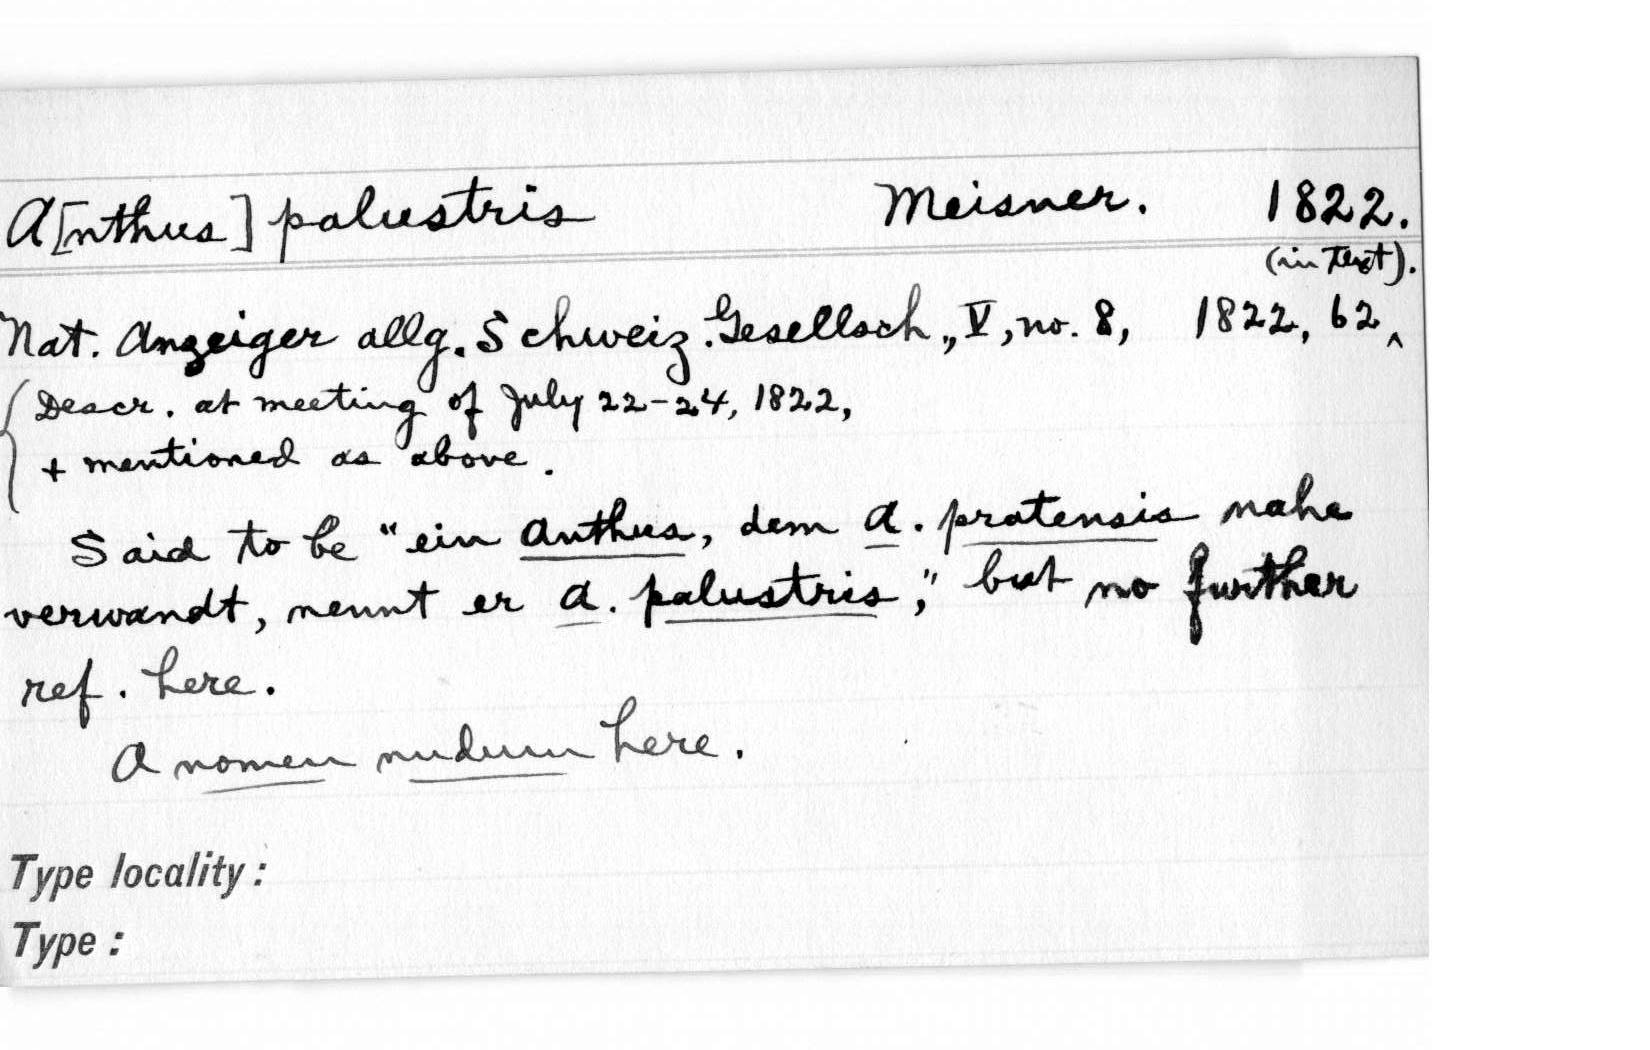 A[nthus] palustris Meisner. 1822.
(in Text).
Nat. Anzeiger allg. Schweiz. Gesellsch., V, no. 8, 1822, 62 ^
{ Descr. at meeting of July 22-24, 1822,
+ mentioned as above.
Said to be "ein Anthus, dem A. pratensis nahe
verwandt, nennt er A. palustris," but no further
ref. here.
A nomen nudum here.
Type locality :
Type :